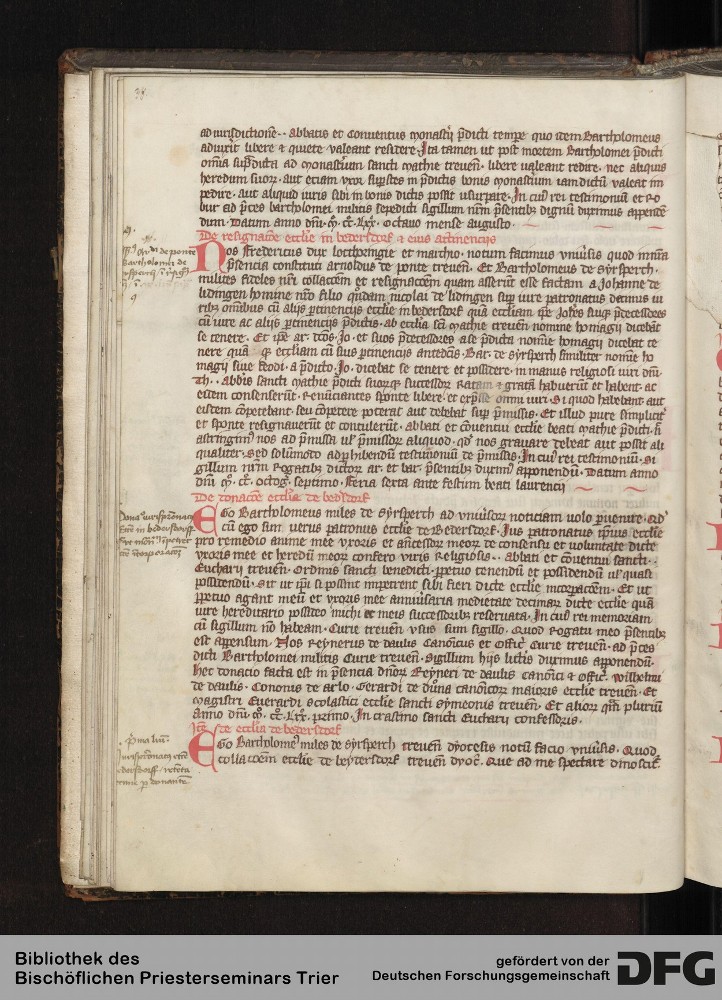 ad iurisdictionē ·· abbatis et conuentus monastīj p̄dicti tempore quo idem Bartholomeus
aduixit libere et quiete valeant residere. Ita tamen ut post mortem Bartholomei p̄dicti
om̄ia sup̄dicta ad monast'ium sancti mathie treueñ. libere ualeant redire. nec aliquis
heredum suor. aut etiam vxor sup̄stes in p̄dictis bonis monasterium iam dictū valeat im
pedire. aut aliquid iuris sibi in bonis dictis possit usurpare. In cui' rei testimoniū et ro
bur ad p̄ces bartholomei militis sepedicti sigillum nr̄m p̄sentib' dignū duximus appende
dum. Datum anno dñi. m̊. cc̊. lxx. octauo mense augusto.
De resignacōne ecclīe in bedersdorf et eius attinencijs
Nos Fredericus dux lotthoringie et marchio. notum facimus vniuīsis quod in nr̄a
p̄sencia constituti arnoldus de ponte treueñ. Et Bartholomeus de Syrsperch.
milites fideles nr̄i collacōem et resignacōem quam asserūt esse factam a Johanne de
lidingen homine nr̄o filio quōdam nicolai de lidingen sup iure patronatus decimis iu
rib' omnib' cū alijs p̄tinencijs ecclīe in bedersdorf quā ecclīam ip̄e Joh̄es suiq' p̄decessores
cū iure ac alijs p̄tinencijs p̄dictis. ab ecclīa sc̄i mathie treueñ nomine homagij dicebāt
se tenere. Et ip̄e ar. dc̄os Jo. et suos p̄decessores a se p̄dicta nomīe homagij dicebat te
nere quā q' ecclīam cū suis p̄tinencijs antedc̄is. Bar. de syrsperch similiter nomīe ho
magij siue feodi. a p̄dicto. Jo. dicebat se tenere et possidere. in manus religiosi viri dn̄i.
Th. ·· Abb̄is sancti mathie p̄dicti suorq' successor Ratam et gratā habuerūt et habent. ac
eidem consenserūt. Renūciantes sponte libere. et exp̄sse omni iuri. Si quod habebant. aut
eisdem cōpetebant. seu cōpetere poterat aut debebat sup p̄missis. Et illud pure simpliciter
et sponte resignauerūt et contulerūt. abbati et cōuentui ecclīe beati mathie p̄dicti. n̄
astringim' nos ad p̄missa ul' p̄missor aliquod. qd' nos grauare debeat aut possit ali
qualiter. Sed solūmodo ad p̄hibendū testimoniū de p̄missis. In cui' rei testimoniū. Si
gillum nr̄m Rogatib' dictor. ar. et bar. p̄sentib' duxim' apponendū. Datum anno
dn̄i. m̊. cc̊. octog̊. septimo. Feria sexta ante festum beati laurencij
De donacōe ecclīe de bedsdorf
Ego Bartholomeus miles de Syrsperch ad vniuīsor noticiam uolo p̄uenire. qd'
cū ego sim verus patronus ecclīe de Bedersdorf. Ius patronatus ip̄ius ecclīe
pro remedio anime mee vxoris et an̄cessor meor de consensu et uoluntate dicte
vxoris mee et heredū meor confero viris Religiosis. ·· abbati et cōuentui sancti ··
Eucharij treueñ. Ordinis sancti benedicti. p̄petuo tenendū et possidendū ul' quasi
possidendū. Sit ut ip̄i si possint impetrent sibi fieri dicte ecclīe incorpacōem. Et ut
p̄petuo agant meū et vxoris mee anniūsaria medietatē decimar dicte ecclīe quā
iure hereditario possideo michi et meis successorib' reseruata. In cui' rei memoriam
cū sigillum nō habeam. Curie treueñ vsus sum sigillo. Quod Rogatu meo p̄sentib'
est appensum. Nos Reynerus de dauils Canōicus et Offic̄. Curie treueñ. ad p̄ces
dicti Bartholomei militis Curie treueñ. Sigillum hijs litt'is duximus apponendū.
Hec donacio facta est in p̄sencia dn̄or Reyneri de dauils canōici et Offic̄. Wilhelmi
de dauils. Cononis de arlo. Gerardi de duna canōicor maioris ecclīe treueñ. Et
magistri Euerardi scolastici ecclīe sancti symeonis treueñ. Et alior qm̄ pluriū
anno dn̄i. m̊. cc̊. lxx. primo. In crastino sancti Eucharij confessoris.
Itē de ecclīa de bedersdorf
Ego Bartholome' miles de Syrsperch treueñ dyocesis notū facio vniuīsis. Quod
collacōem ecclīe de beydersdorf treueñ dyoc̄. Que ad me spectare dinoscit'.
Bibliothek des
Bischöflichen Priesterseminars Trier
gefördert von der
Deutschen Forschungsgemeinschaft
DFG